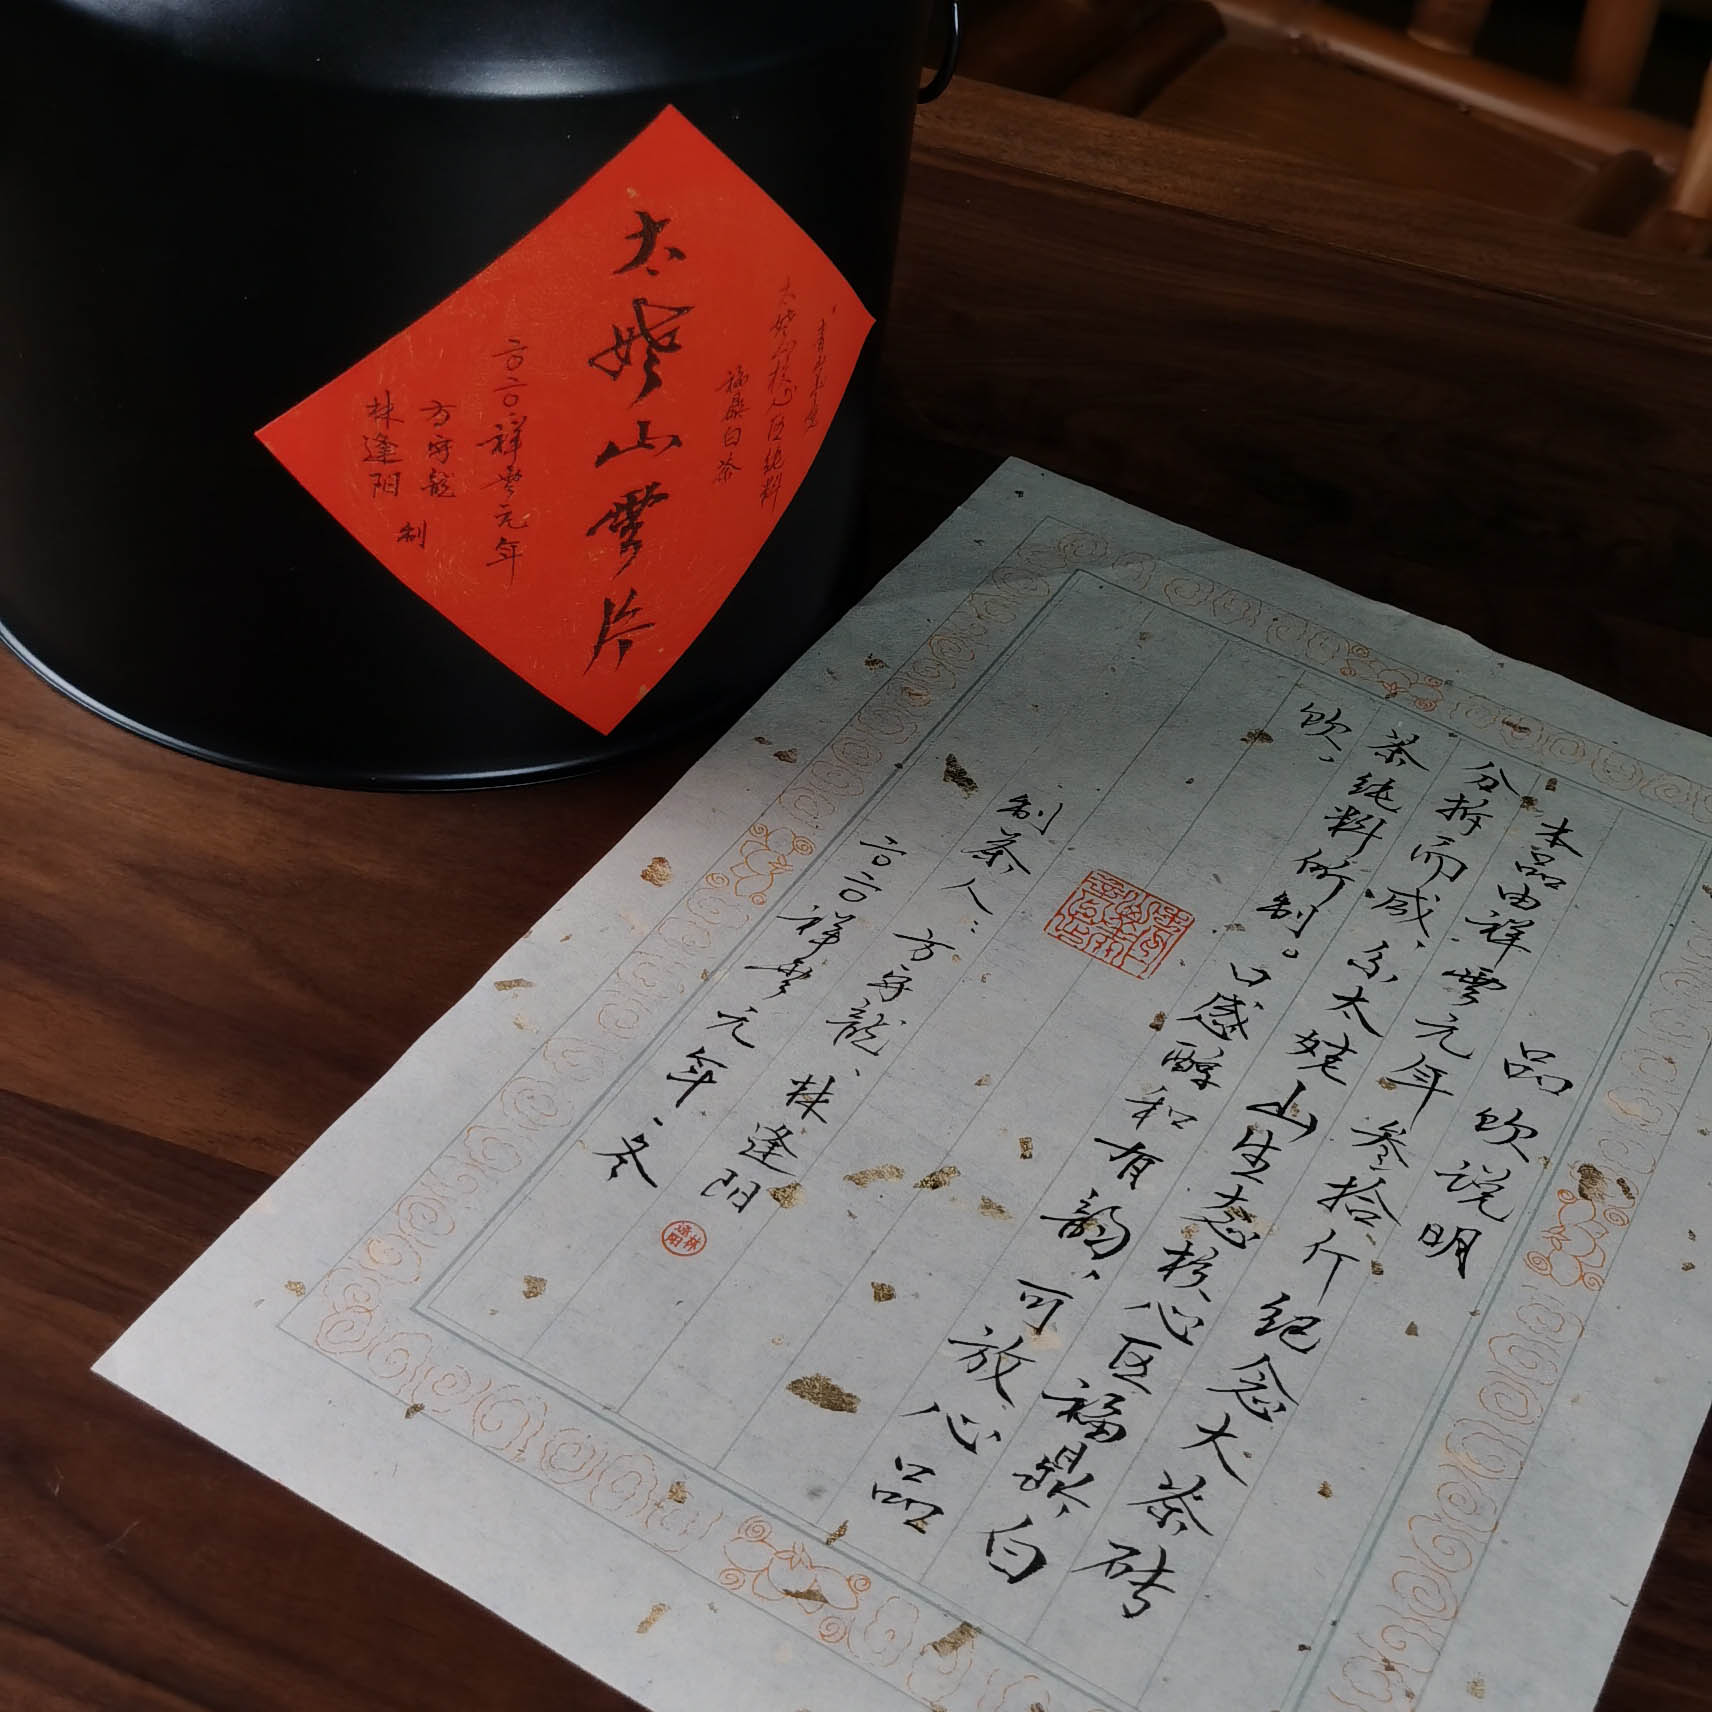 太姥山核心区纯料
福鼎白茶
太姥山雲片
二〇二〇祥雲元年
方守龍
林逢阳
制
品饮说明
本品由祥雲元年叁拾斤纪念大茶砖
分拆而成、系太姥山生态核心区福鼎白
茶纯料所制。口感醇和有韵、可放心品
饮、
制茶人：方守龍、林逢阳
二〇二〇祥雲元年、冬
林逢阳